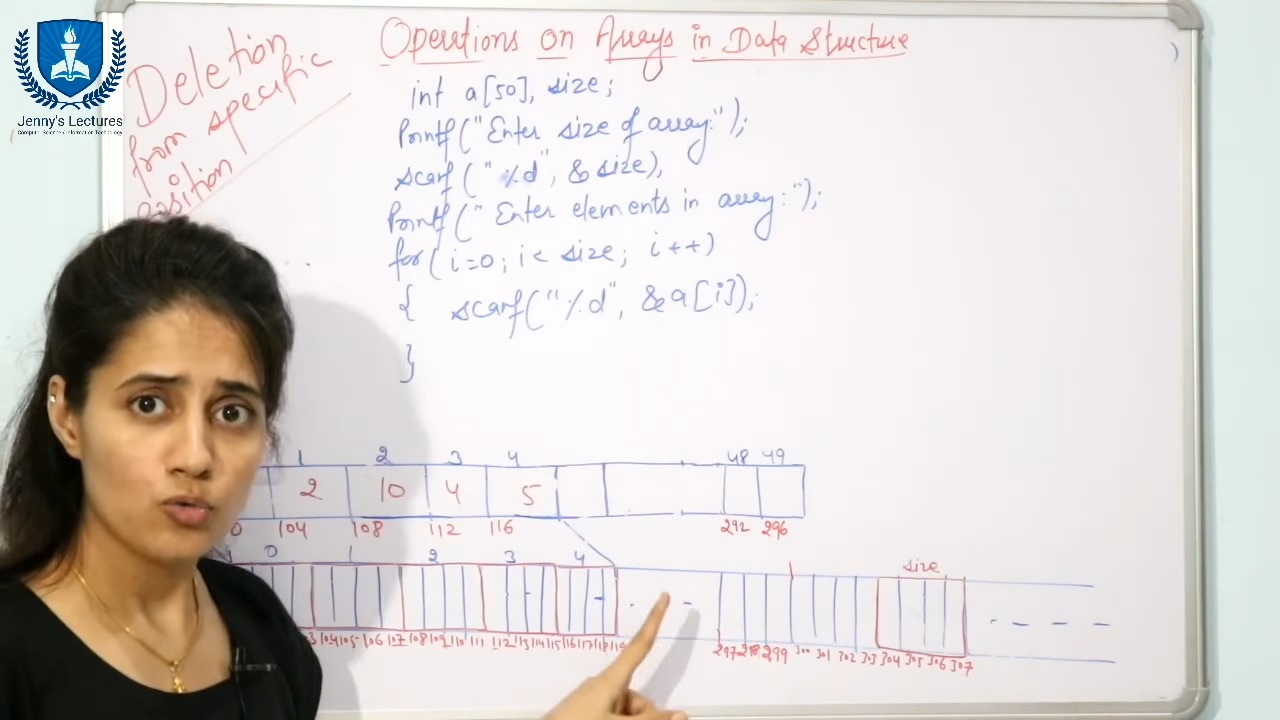 Jenny's Lectures
Computer Science/Information Technology
Deletion
from specific
Position
Operations on Arrays in Data Structure
int a[50], size;
Printf("Enter size of array:");
scanf("%d", &size),
Printf("Enter elements in array:");
for(i=0; i< size; i++)
{ scanf("%d", &a[i]);
}
1 2 3 4 48 49
2 10 4 5
0 104 108 112 116 292 296
0 1 2 3 4 size
3 104 105 106 107 108 109 110 111 112 113 114 115 116 117 118 119 297 298 299 300 301 302 303 304 305 306 307